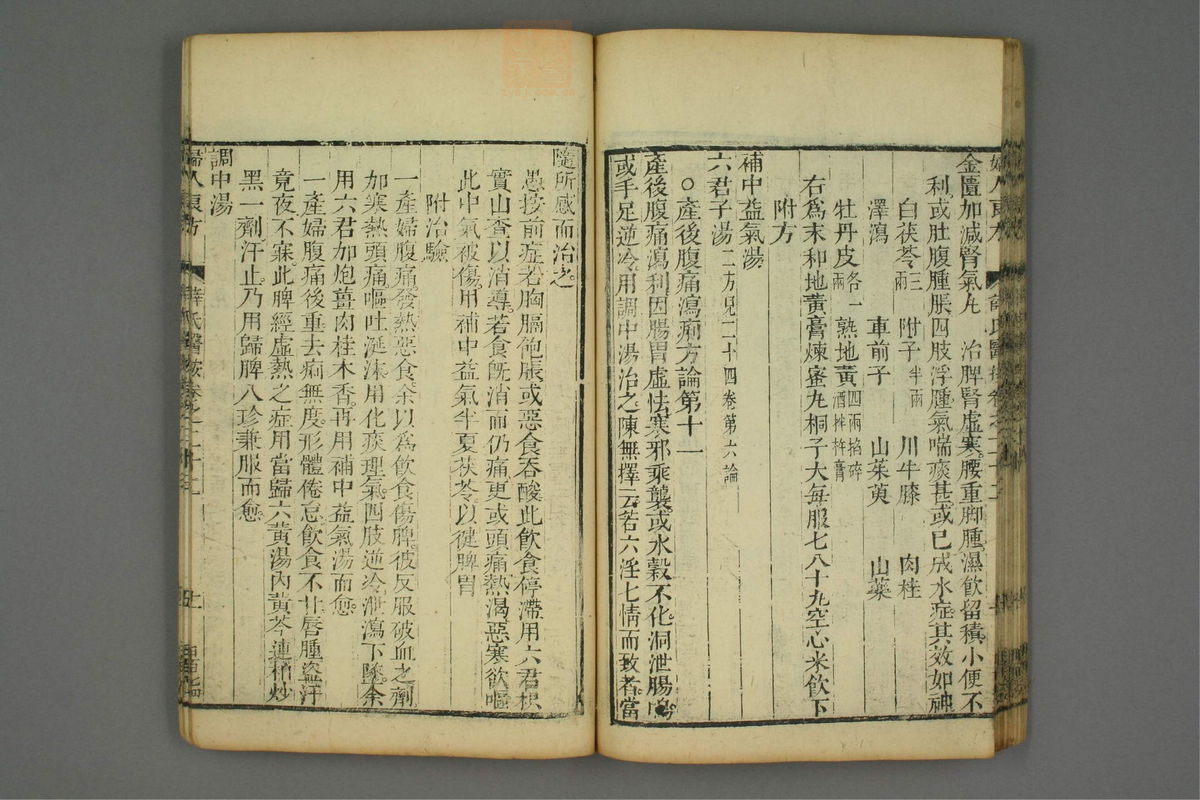 金匱加減腎氣丸　治脾腎虛寒腰重脚腫濕飮留積小便不
利或肚腹腫脹四肢浮腫氣喘痰甚或已成水症其效如神
白茯苓三兩　附子半兩　川牛膝　肉桂
澤瀉　車前子　山茱萸　山藥
牡丹皮各一兩　熟地黃四兩掐碎酒拌杵膏
右爲末和地黃膏煉蜜丸桐子大每服七八十丸空心米飮下
附方
補中益氣湯
六君子湯二方見二十四卷第六論
○產後腹痛瀉痢方論第十一
產後腹痛瀉利因腸胃虛怯寒邪乘襲或水穀不化洞泄腸鳴
或手足逆冷用調中湯治之陳無擇云若六淫七情而致者當
隨所感而治之
愚按前症若胸膈飽脹或惡食吞酸此飮食停滯用六君枳
實山查以消導若食旣消而仍痛更或頭痛熱渴惡寒欲嘔
此中氣被傷用補中益氣半夏茯苓以健脾胃
附治驗
一產婦腹痛發熱惡食余以爲飮食傷脾彼反服破血之劑
加寒熱頭痛嘔吐涎沫用化痰理氣四肢逆冷泄瀉下墜余
用六君加炮薑肉桂木香再用補中益氣湯而愈
一產婦腹痛後重去痢無度形體倦怠飮食不甘唇腫盜汗
竟夜不寐此脾經虛熱之症用當歸六黃湯內黃芩連柏炒
黑一劑汗止乃用歸脾八珍兼服而愈
調中湯
婦人良方　薛氏醫按卷之二十二